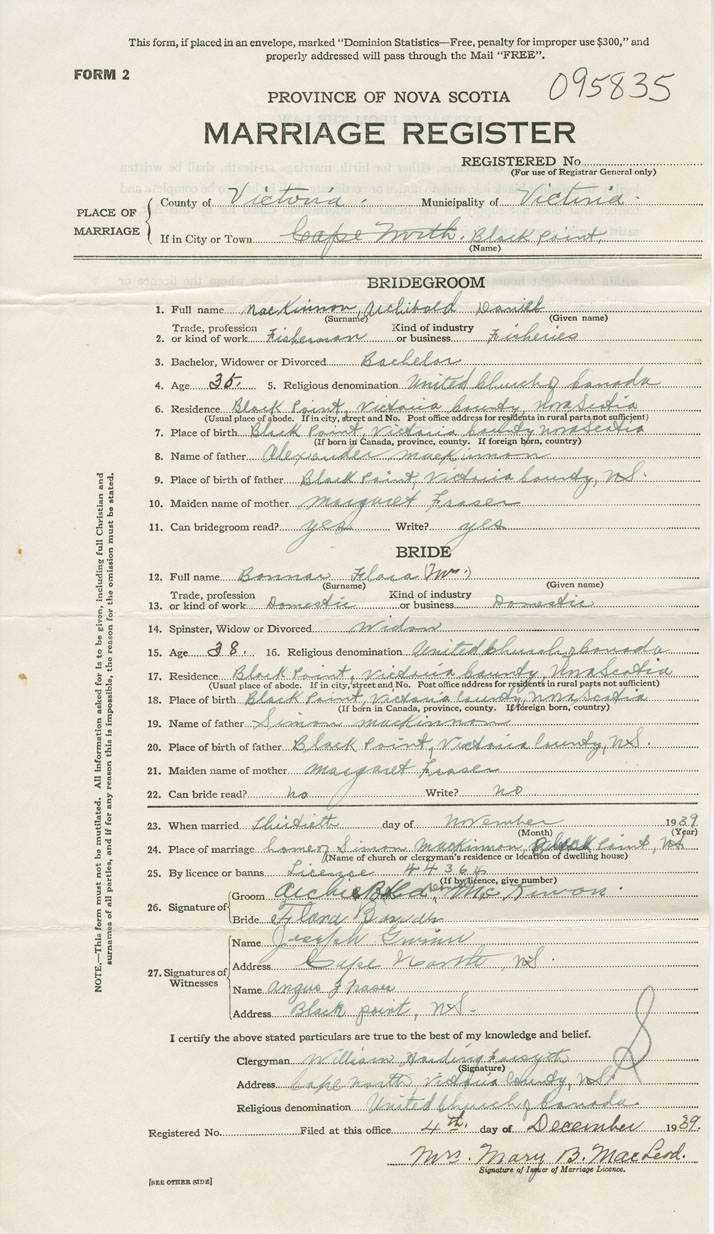 This form, if placed in an envelope, marked "Dominion Statistics—Free, penalty for improper use $300," and
properly addressed will pass through the Mail "FREE".
FORM 2
095835
PROVINCE OF NOVA SCOTIA
MARRIAGE REGISTER
REGISTERED No.
(For use of Registrar General only)
PLACE OF MARRIAGE
County of Victoria. Municipality of Victoria.
If in City or Town Cape North. Black Point.
(Name)
BRIDEGROOM
1. Full name MacKinnon, Archibald Daniel
(Surname) (Given name)
2. Trade, profession or kind of work Fisherman Kind of industry or business Fisheries
3. Bachelor, Widower or Divorced Bachelor
4. Age 35. 5. Religious denomination United Church of Canada
6. Residence Black Point, Victoria County, Nova Scotia
(Usual place of abode. If in city, street and No. Post office address for residents in rural parts not sufficient)
7. Place of birth Black Point, Victoria County Nova Scotia
(If born in Canada, province, county. If foreign born, country)
8. Name of father Alexander MacKinnon
9. Place of birth of father Black Point, Victoria County, N.S.
10. Maiden name of mother Margaret Fraser
11. Can bridegroom read? yes Write? yes
BRIDE
12. Full name Bonnar Flora (Mrs.)
(Surname) (Given name)
13. Trade, profession or kind of work Domestic Kind of industry or business Domestic
14. Spinster, Widow or Divorced Widow
15. Age 38. 16. Religious denomination United Church of Canada
17. Residence Black Point, Victoria County, Nova Scotia
(Usual place of abode. If in city, street and No. Post office address for residents in rural parts not sufficient)
18. Place of birth Black Point, Victoria County, Nova Scotia
(If born in Canada, province, county. If foreign born, country)
19. Name of father Simon MacKinnon
20. Place of birth of father Black Point, Victoria County, N.S.
21. Maiden name of mother Margaret Fraser
22. Can bride read? no Write? no
23. When married Thirtieth day of November 1939
(Month) (Year)
24. Place of marriage home of Simon MacKinnon, Black Point, N.S.
(Name of church or clergyman's residence or location of dwelling house)
25. By licence or banns License 44364
(If by licence, give number)
26. Signature of
Groom
Bride Flora
27. Signatures of Witnesses
Name Joseph
Address Cape North, N.S.
Name Angus Fraser
Address Black point, N.S.
I certify the above stated particulars are true to the best of my knowledge and belief.
Clergyman William Harding Forsyth
(Signature)
Address Cape North Victoria County, N.S.
Religious denomination United Church of Canada
Registered No. Filed at this office 4th. day of December 1939.
Mrs. Mary B. MacLeod.
Signature of Issuer of Marriage Licence.
[SEE OTHER SIDE]
NOTE.—This form must not be mutilated. All information asked for is to be given, including full Christian and
surnames of all parties, and if for any reason this is impossible, the reason for the omission must be stated.